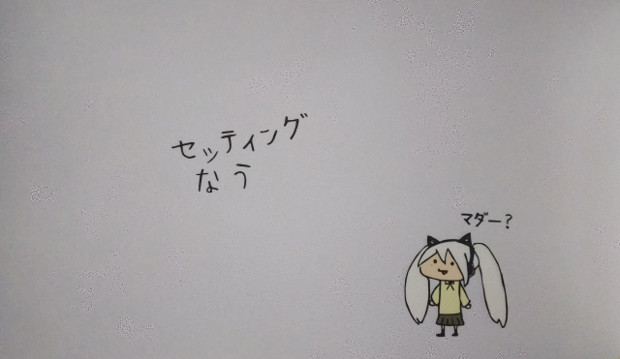 セッティング
なう
マダー?